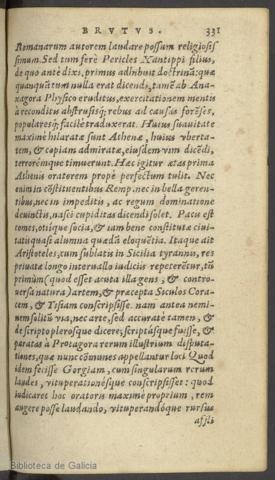 BRVTVS. 331
Romanarum autorem laudare possum religiosis
simum. Sed tum ferè Pericles Xantippi filius,
de quo antè dixi, primus adhibuit doctrinã: quæ
quanquã tum nulla erat dicendi, tamẽ ab Ana-
xagora Physico eruditus, exercitationem mentis
à reconditis abstrusisq́; rebus ad causas forẽses,
popularesq́; facilè traduxerat. Huius suauitate
maximè hilaratæ sunt Athenæ, huius vberta-
tem, & copiam admiratæ, eiusdem vim dicẽdi,
terrorémque timuerunt. Hæc igitur ætas prima
Athenis oratorem propè perfectum tulit. Nec
enim in cõstituentibus Remp. nec in bella geren-
tibus, nec in impeditis, ac regum dominatione
deuinctis, nasci cupiditas dicendi solet. Pacis est
comes, otiíque socia, & iam bene constitutæ ciui-
tatis quasi alumna quædã eloquẽtia. Itaque ait
Aristoteles, cum sublatis in Sicilia tyrannis, res
priuatæ longo interuallo iudiciis repeterẽtur, tũ
primùm; quòd esset acuta illa gens, & contro-
uersa natura) artem, & præcepta Siculos Cora-
cem, & Tisiam conscripsisse. nam antea nemi-
nem solitũ via, nec arte, sed accuratè tamen, &
de scripto plerosque dicere; scriptásque fuisse, &
paratas à Protagora rerum illustrium disputa-
tiones, quæ nunc cõmunes appellantur loci. Quod
idem fecisse Gorgiam, cum singularum rerum
laudes, vituperationésque conscripsisset: quòd
iudicaret hoc oratoris maximè proprium, rem
augere posse laudando, vituperandóque rursus
affli
Biblioteca de Galicia